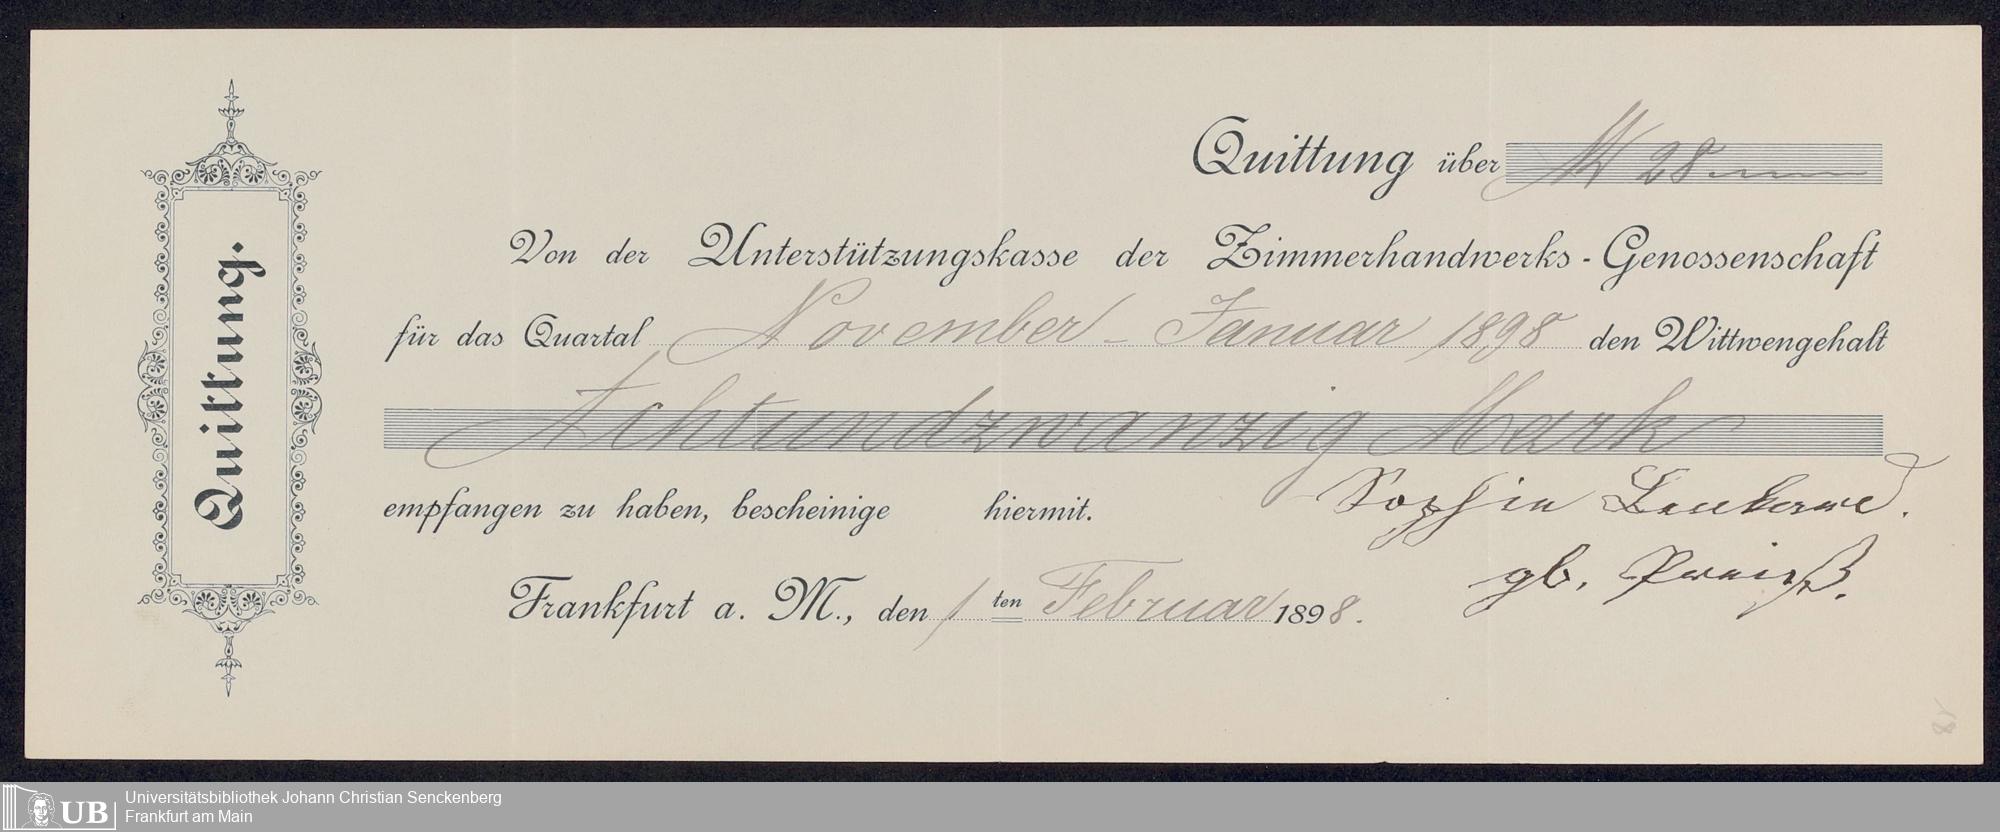 Quittung.
Quittung über M 28
Von der Unterstützungskasse der Zimmerhandwerks-Genossenschaft
für das Quartal November - Januar 1898 den Wittwengehalt
Achtundzwanzig Mark
empfangen zu haben, bescheinige hiermit.
Sophie
gb. Preiß.
Frankfurt a. M., den 1 ten Februar 1898.
18
UB
Universitätsbibliothek Johann Christian Senckenberg
Frankfurt am Main